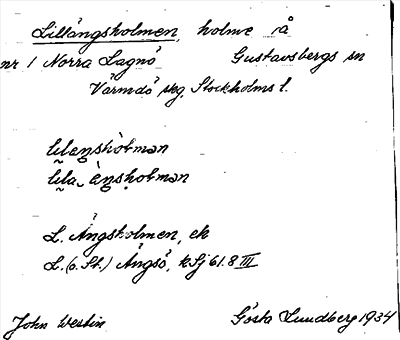 Lillängsholmen, holme å
nr 1 Norra Lagnö Gustavsbergs sn
Värmdö skg, Stockholms l.
L. Ängsholmen, ek
L. (o. St.) Ängsö, kSj 61.8 III
John Westin Gösta Lundberg 1934